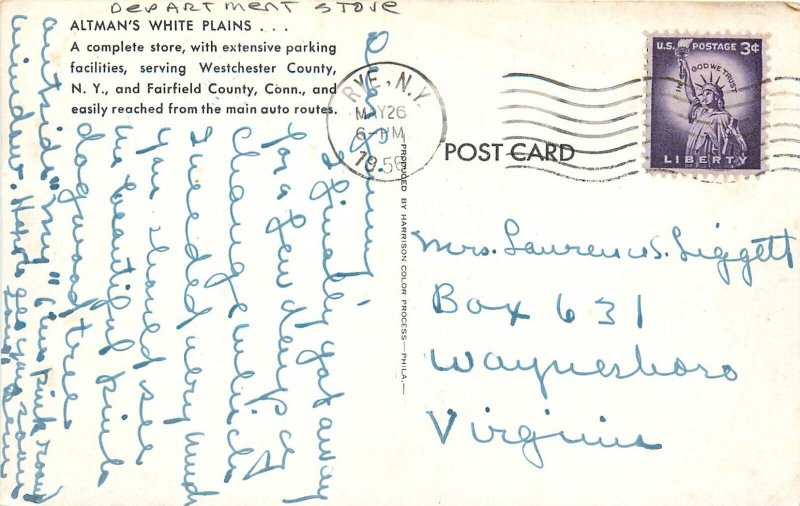 DEPARTMENT STORE
ALTMAN'S WHITE PLAINS . . .
A complete store, with extensive parking
facilities, serving Westchester County,
N. Y., and Fairfield County, Conn., and
easily reached from the main auto routes.
RYE, N.Y.
MAY 26
6-PM
1956
U.S. POSTAGE 3¢
IN GOD WE TRUST
LIBERTY
POST CARD
PRODUCED BY HARRISON COLOR PROCESS—PHILA.
Mrs. Laurence S. Liggett
Box 631
Waynesboro
Virginia
I finally got away
for a few days
change which
I needed very much
You should see
the beautiful pink
dogwood tree
outside "my" pink room
window. Hope to see you soon
Love